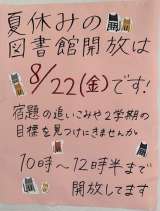 夏休みの
図書館開放は
8/22(金)です!
宿題の追いこみや2学期の
目標を見つけにきませんか
10時～12時半まで
開放してます